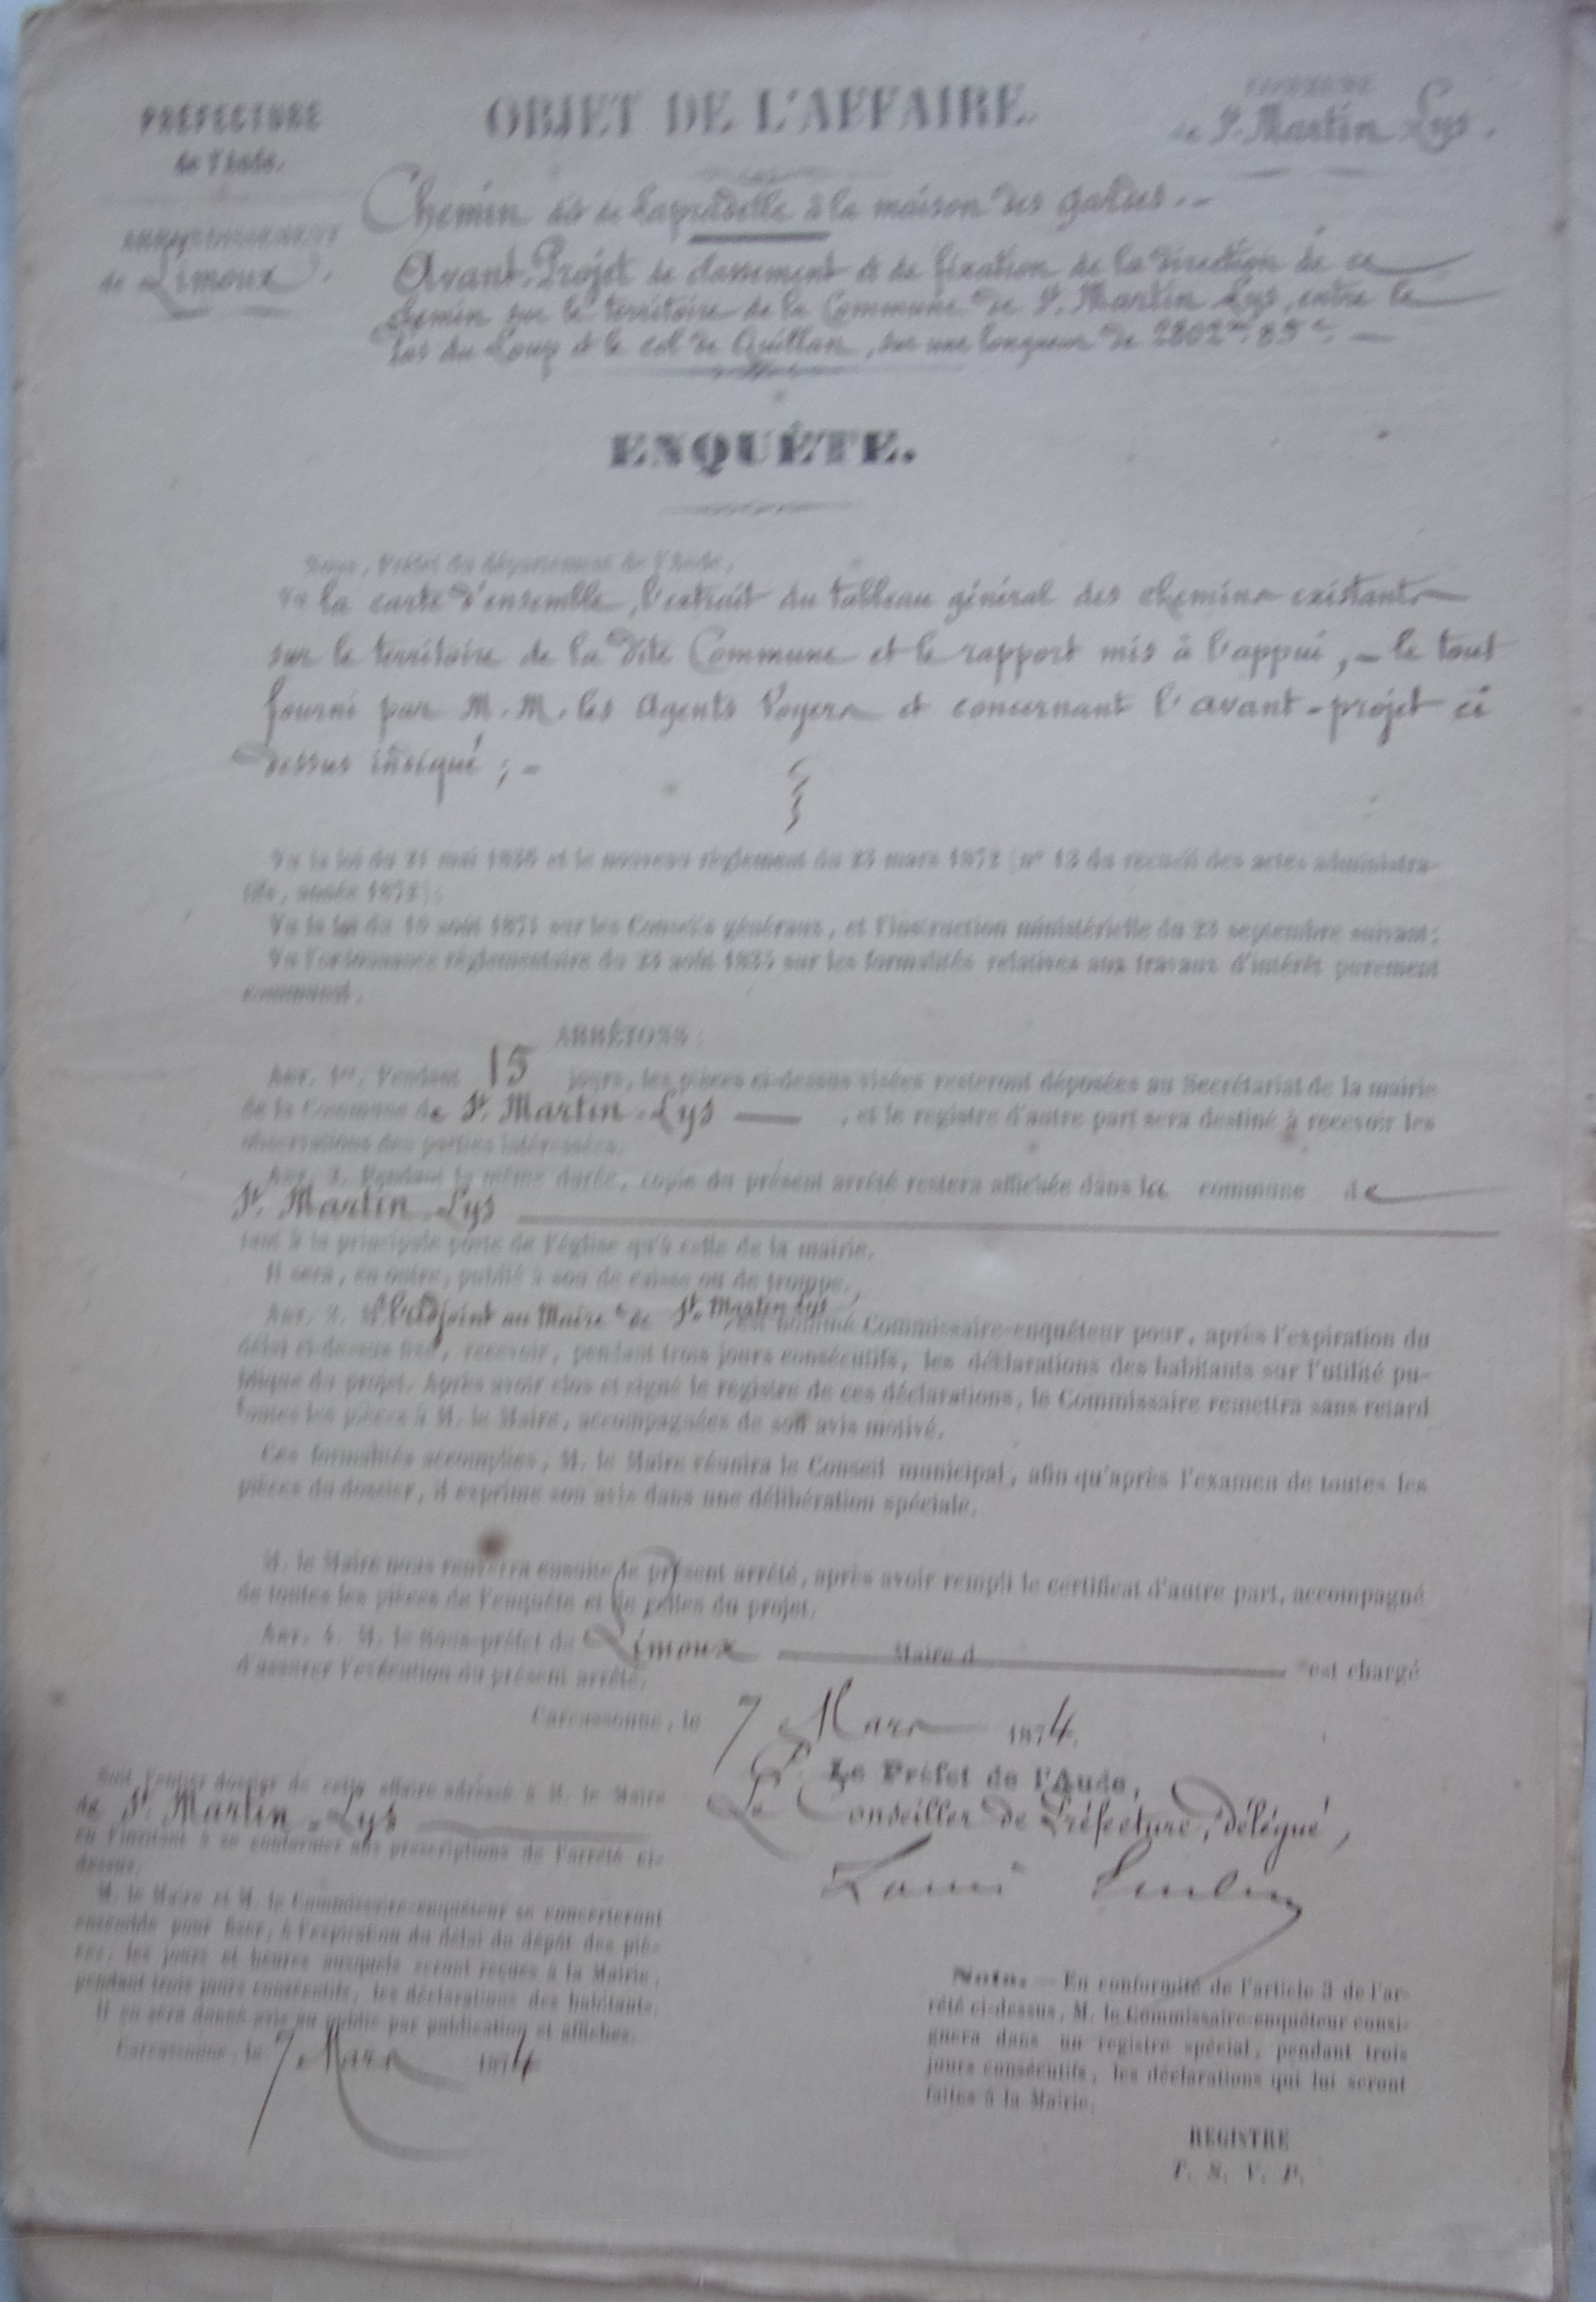 PRÉFECTURE
de l'Aude.
OBJET DE L'AFFAIRE.
COMMUNE
de St. Martin Lys.
ARRONDISSEMENT
de Limoux.
Chemin dit de Lapradelle à la maison des gardes..-
Avant-Projet de classement et de fixation de la direction de ce
chemin sur le territoire de la Commune de St. Martin Lys, entre le
Pas du Loup et le col de Quillan, sur une longueur de 2802m. 85c. —
ENQUÊTE.
Nous, Préfet du département de l'Aude,
Vu la carte d'ensemble, l'extrait du tableau général des chemins existants
sur le territoire de la dite Commune et le rapport mis à l'appui, - le tout
fourni par M. M. les Agents Voyers et concernant l'avant-projet ci
dessus indiqué ; -
Vu la loi du 21 mai 1836 et le nouveau règlement du 23 mars 1872 (n° 13 du recueil des actes administra-
tifs, année 1872);
Vu la loi du 10 août 1871 sur les Conseils généraux, et l'instruction ministérielle du 23 septembre suivant;
Vu l'ordonnance réglementaire du 23 août 1835 sur les formalités relatives aux travaux d'intérêt purement
communal,
ARRÊTONS :
ART. 1er. Pendant 15 jours, les pièces ci-dessus visées resteront déposées au Secrétariat de la mairie
de la Commune de St. Martin-Lys —, et le registre d'autre part sera destiné à recevoir les
observations des parties intéressées.
ART. 2. Pendant la même durée, copie du présent arrêté restera affichée dans la commune de
St. Martin-Lys
tant à la principale porte de l'église qu'à celle de la mairie.
Il sera, en outre, publié à son de caisse ou de trompe.
ART. 3. M. l'adjoint au Maire de St. Martin Lys, est nommé Commissaire-enquêteur pour, après l'expiration du
délai ci-dessus fixé, recevoir, pendant trois jours consécutifs, les déclarations des habitants sur l'utilité pu-
blique du projet. Après avoir clos et signé le registre de ces déclarations, le Commissaire remettra sans retard
toutes les pièces à M. le Maire, accompagnées de son avis motivé.
Ces formalités accomplies, M. le Maire réunira le Conseil municipal, afin qu'après l'examen de toutes les
pièces du dossier, il exprime son avis dans une délibération spéciale.
M. le Maire nous renverra ensuite le présent arrêté, après avoir rempli le certificat d'autre part, accompagné
de toutes les pièces de l'enquête et de celles du projet.
ART. 4. M. le Sous-préfet de Limoux — Maire d — est chargé
d'assurer l'exécution du présent arrêté.
Carcassonne, le 7 Mars 1874.
P. Le Préfet de l'Aude,
Le Conseiller de Préfecture, délégué,
Louis
de cette affaire adressé à M. le Maire
de St. Martin-Lys
en l'invitant à se conformer aux prescriptions de l'arrêté ci-
dessus.
M. le Maire et M. le Commissaire-enquêteur se concerteront
ensemble pour fixer, à l'expiration du délai du dépôt des piè-
ces, les jours et heures auxquels seront reçues à la Mairie,
pendant trois jours consécutifs, les déclarations des habitants.
Il en sera donné avis au public par publication et affiches.
Carcassonne, le 7 Mars 1874
Nota. — En conformité de l'article 3 de l'ar-
rêté ci-dessus, M. le Commissaire-enquêteur consi-
gnera dans un registre spécial, pendant trois
jours consécutifs, les déclarations qui lui seront
faites à la Mairie.
REGISTRE
T. S. V. P.